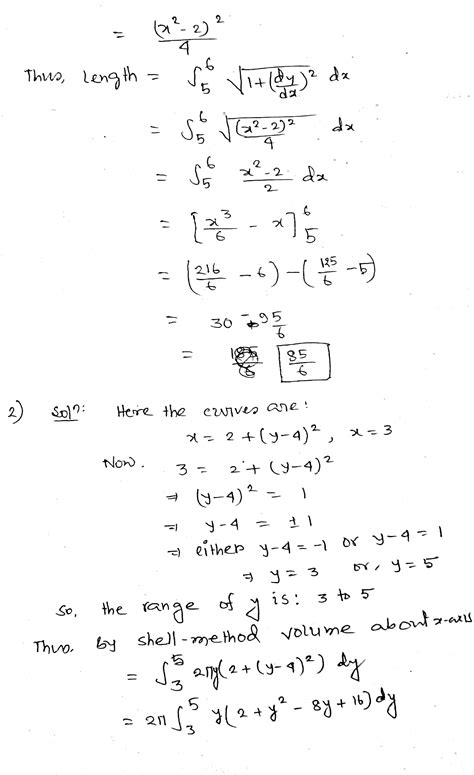 = (x²-2)²/4
Thus, Length = ∫₅⁶ √(1+(dy/dx)²) dx
= ∫₅⁶ √((x²-2)²/4) dx
= ∫₅⁶ (x²-2)/2 dx
= [x³/6 - x]₅⁶
= (216/6 - 6) - (125/6 - 5)
= 30 - 95/6
= 85/6
2) Solⁿ: Here the curves are:
x = 2 + (y-4)², x = 3
Now. 3 = 2 + (y-4)²
⇒ (y-4)² = 1
⇒ y-4 = ±1
⇒ either y-4 = -1 or y-4 = 1
⇒ y = 3 or, y = 5
So, the range of y is: 3 to 5
Thus, by shell-method volume about x-axis
= ∫₃⁵ 2πy(2+(y-4)²) dy
= 2π ∫₃⁵ y(2+y²-8y+16) dy